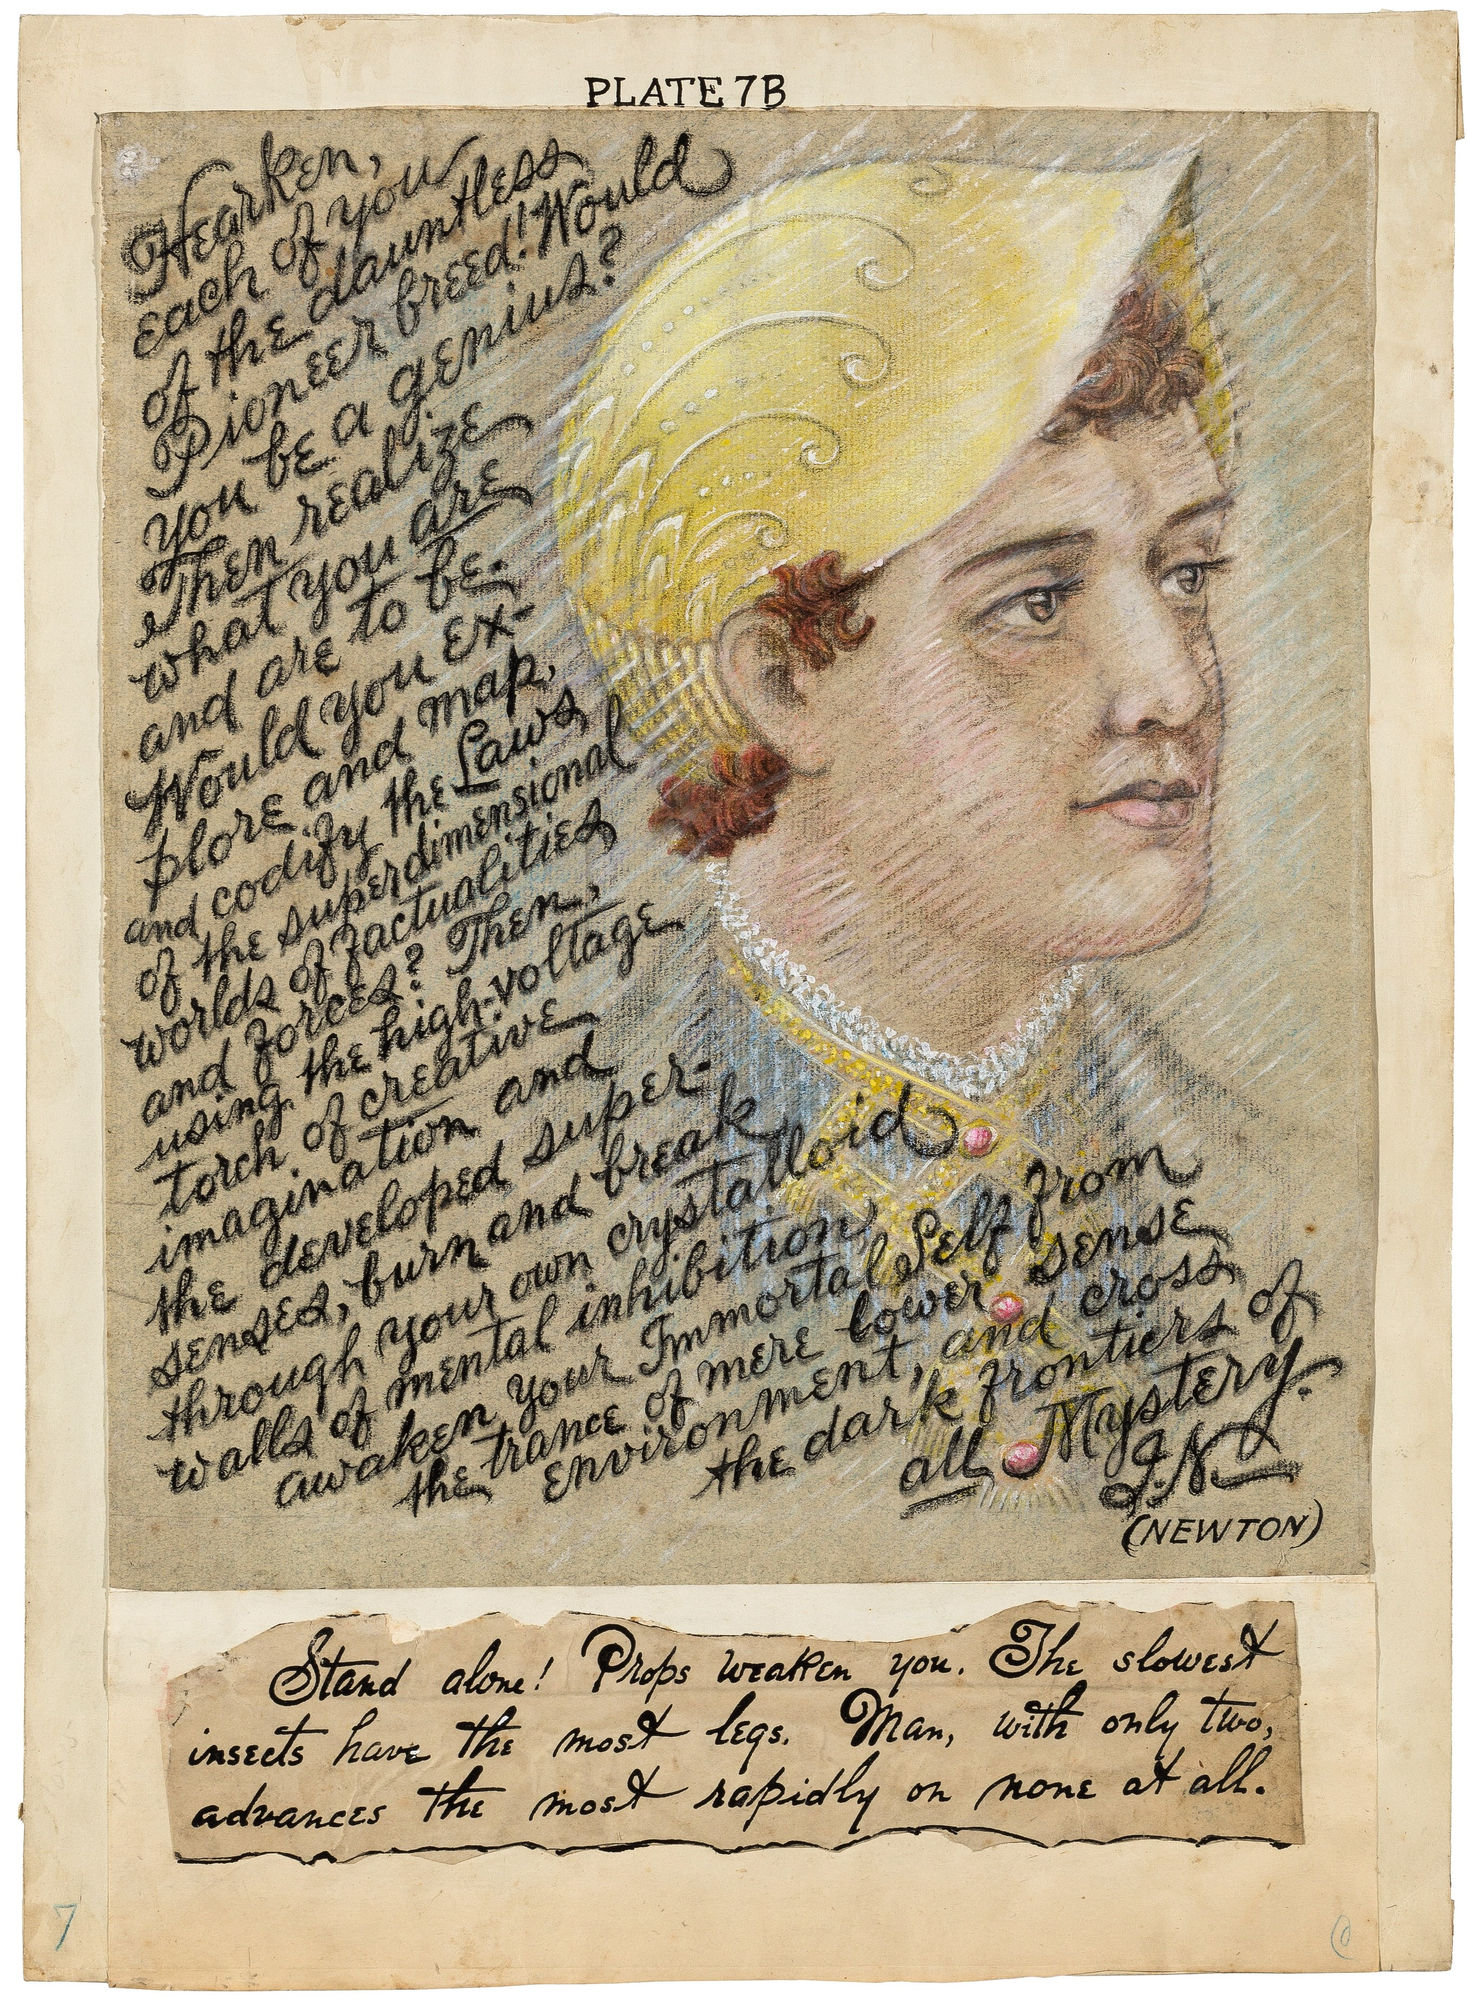 PLATE 7B
Hearken,
each of you
of the dauntless
Pioneer breed! Would
you be a genius?
Then realize
what you are
and are to be.
Would you ex-
plore and map,
and codify the Laws
of the superdimensional
worlds of factualities
and forces? Then,
using the high-voltage
torch of creative
imagination and
the developed super-
senses, burn and break
through your own crystalloid
walls of mental inhibition,
awaken your Immortal Self from
the trance of mere lower sense
environment, and cross
the dark frontiers of
all Mystery.
I.N.
(NEWTON)
Stand alone! Props weaken you. The slowest
insects have the most legs. Man, with only two,
advances the most rapidly on none at all.
7